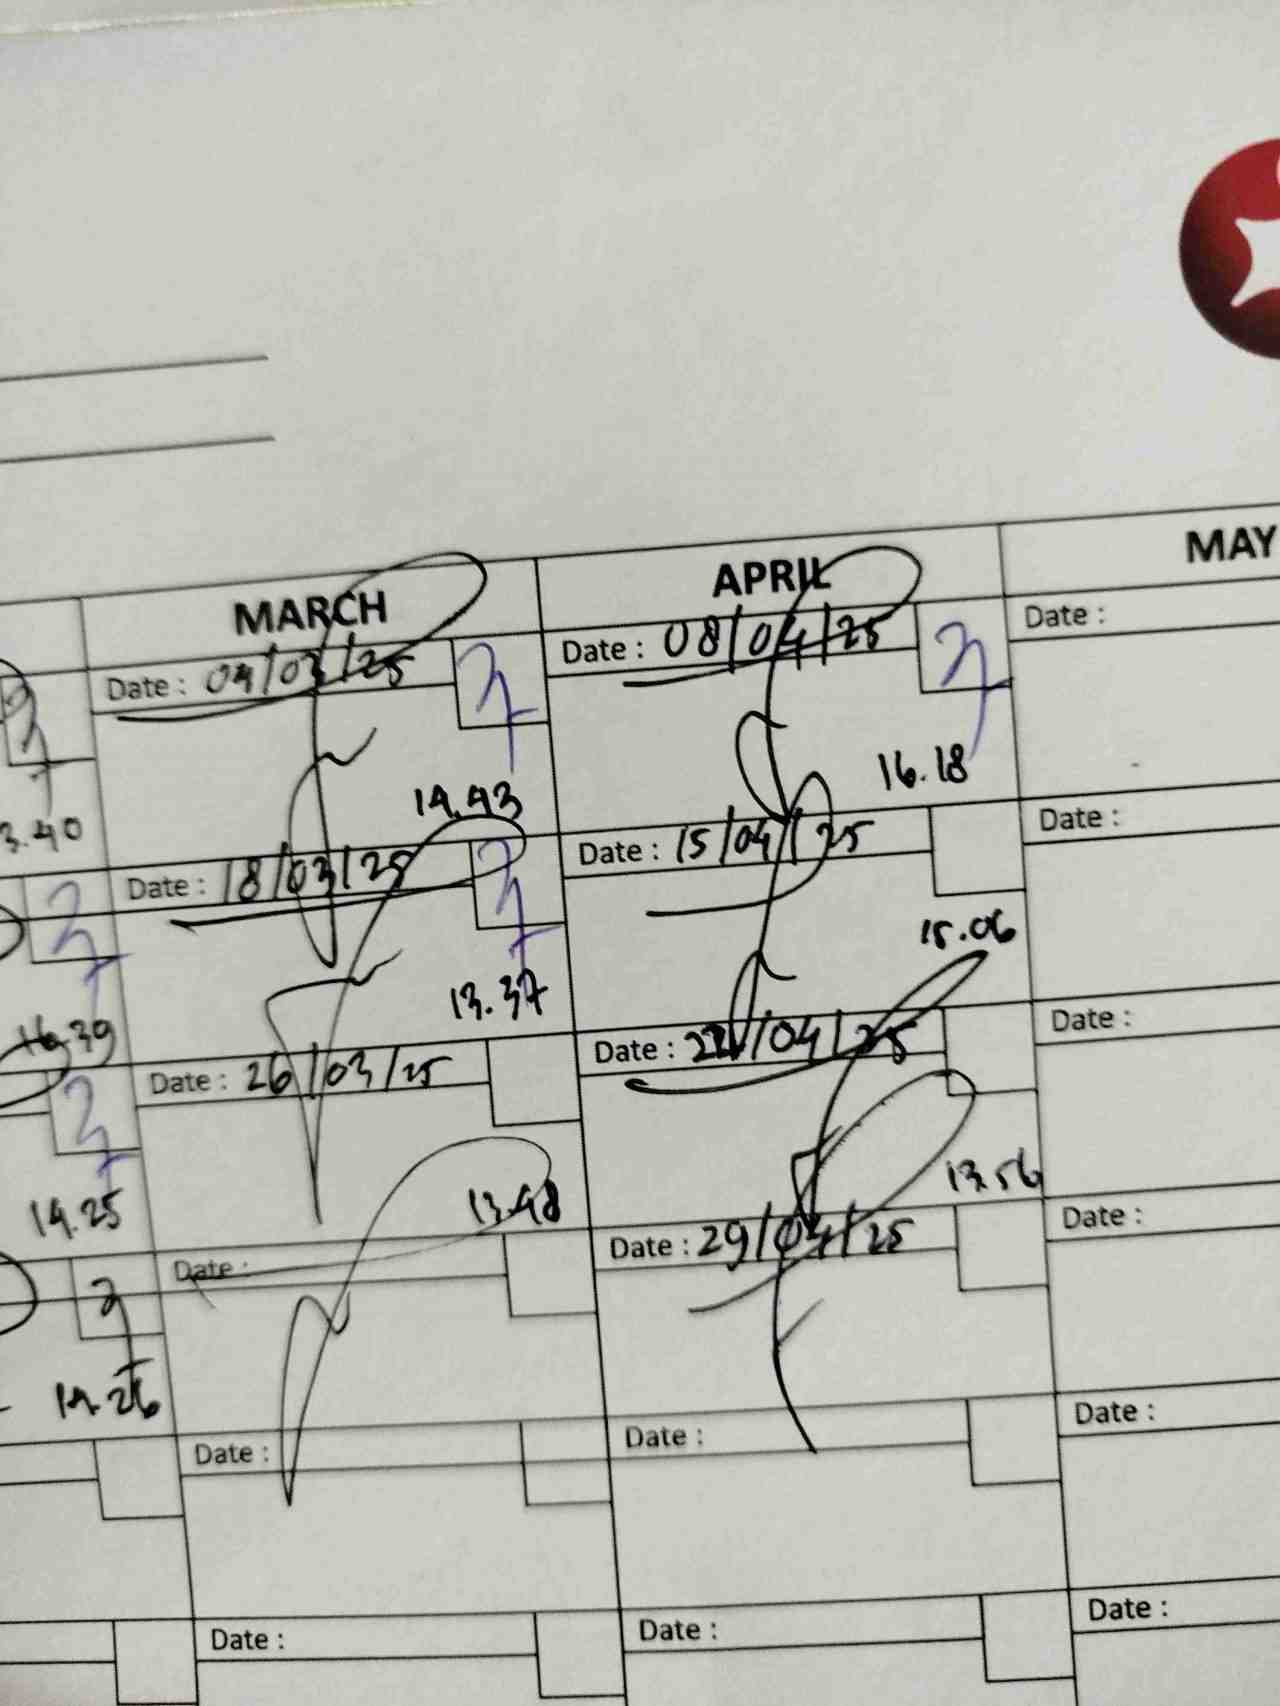 MARCH APRIL MAY
Date : 04/03/25 Date : 08/04/25 Date :
3.40 14.43 16.18
Date : 18/03/25 Date : 15/04/25 Date :
16.39 13.37 15.06
Date : 26/03/25 Date : 22/04/25 Date :
14.25 13.48 13.56
Date : Date : 29/04/25 Date :
14.26
Date : Date : Date :
Date : Date : Date :